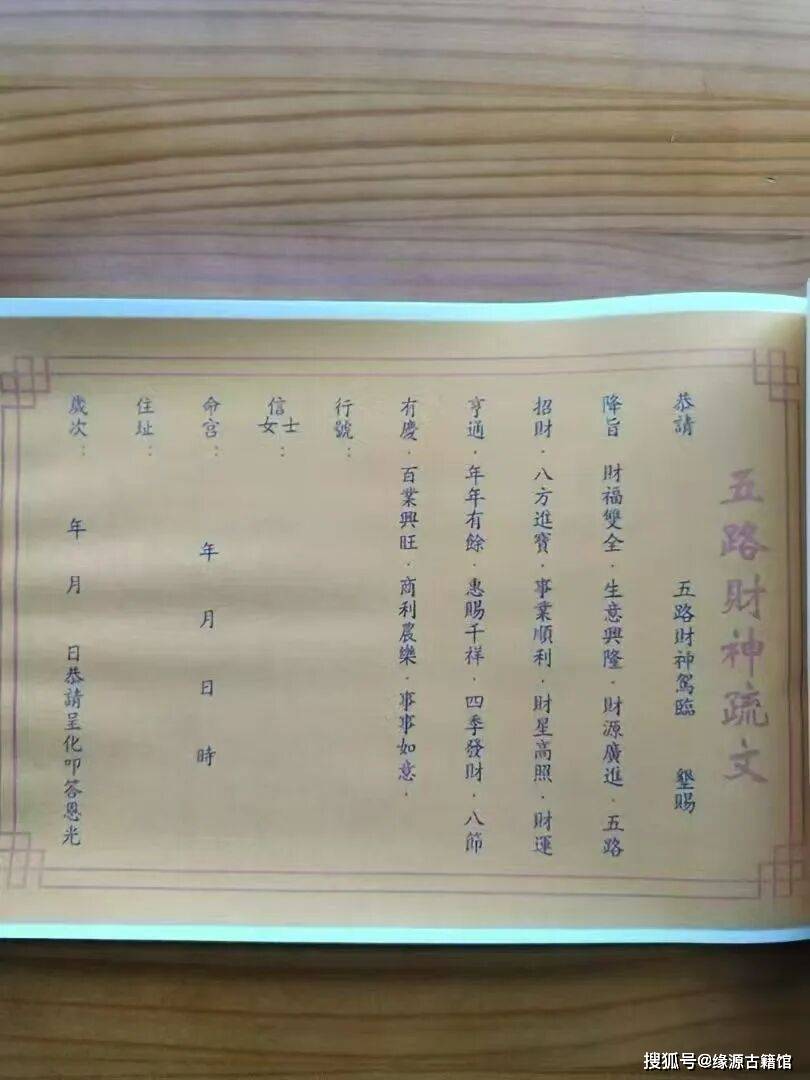 五路財神疏文
恭請 五路財神駕臨 墾賜
降旨 財福雙全．生意興隆．財源廣進．五路
招財．八方進寶．事業順利．財星高照．財運
亨通．年年有餘．惠賜千祥．四季發財．八節
有慶．百業興旺．商利農樂．事事如意．
行號：
信女士：
命宮： 年 月 日 時
住址：
歲次： 年 月 日恭請呈化叩答恩光
搜狐号@缘源古籍馆